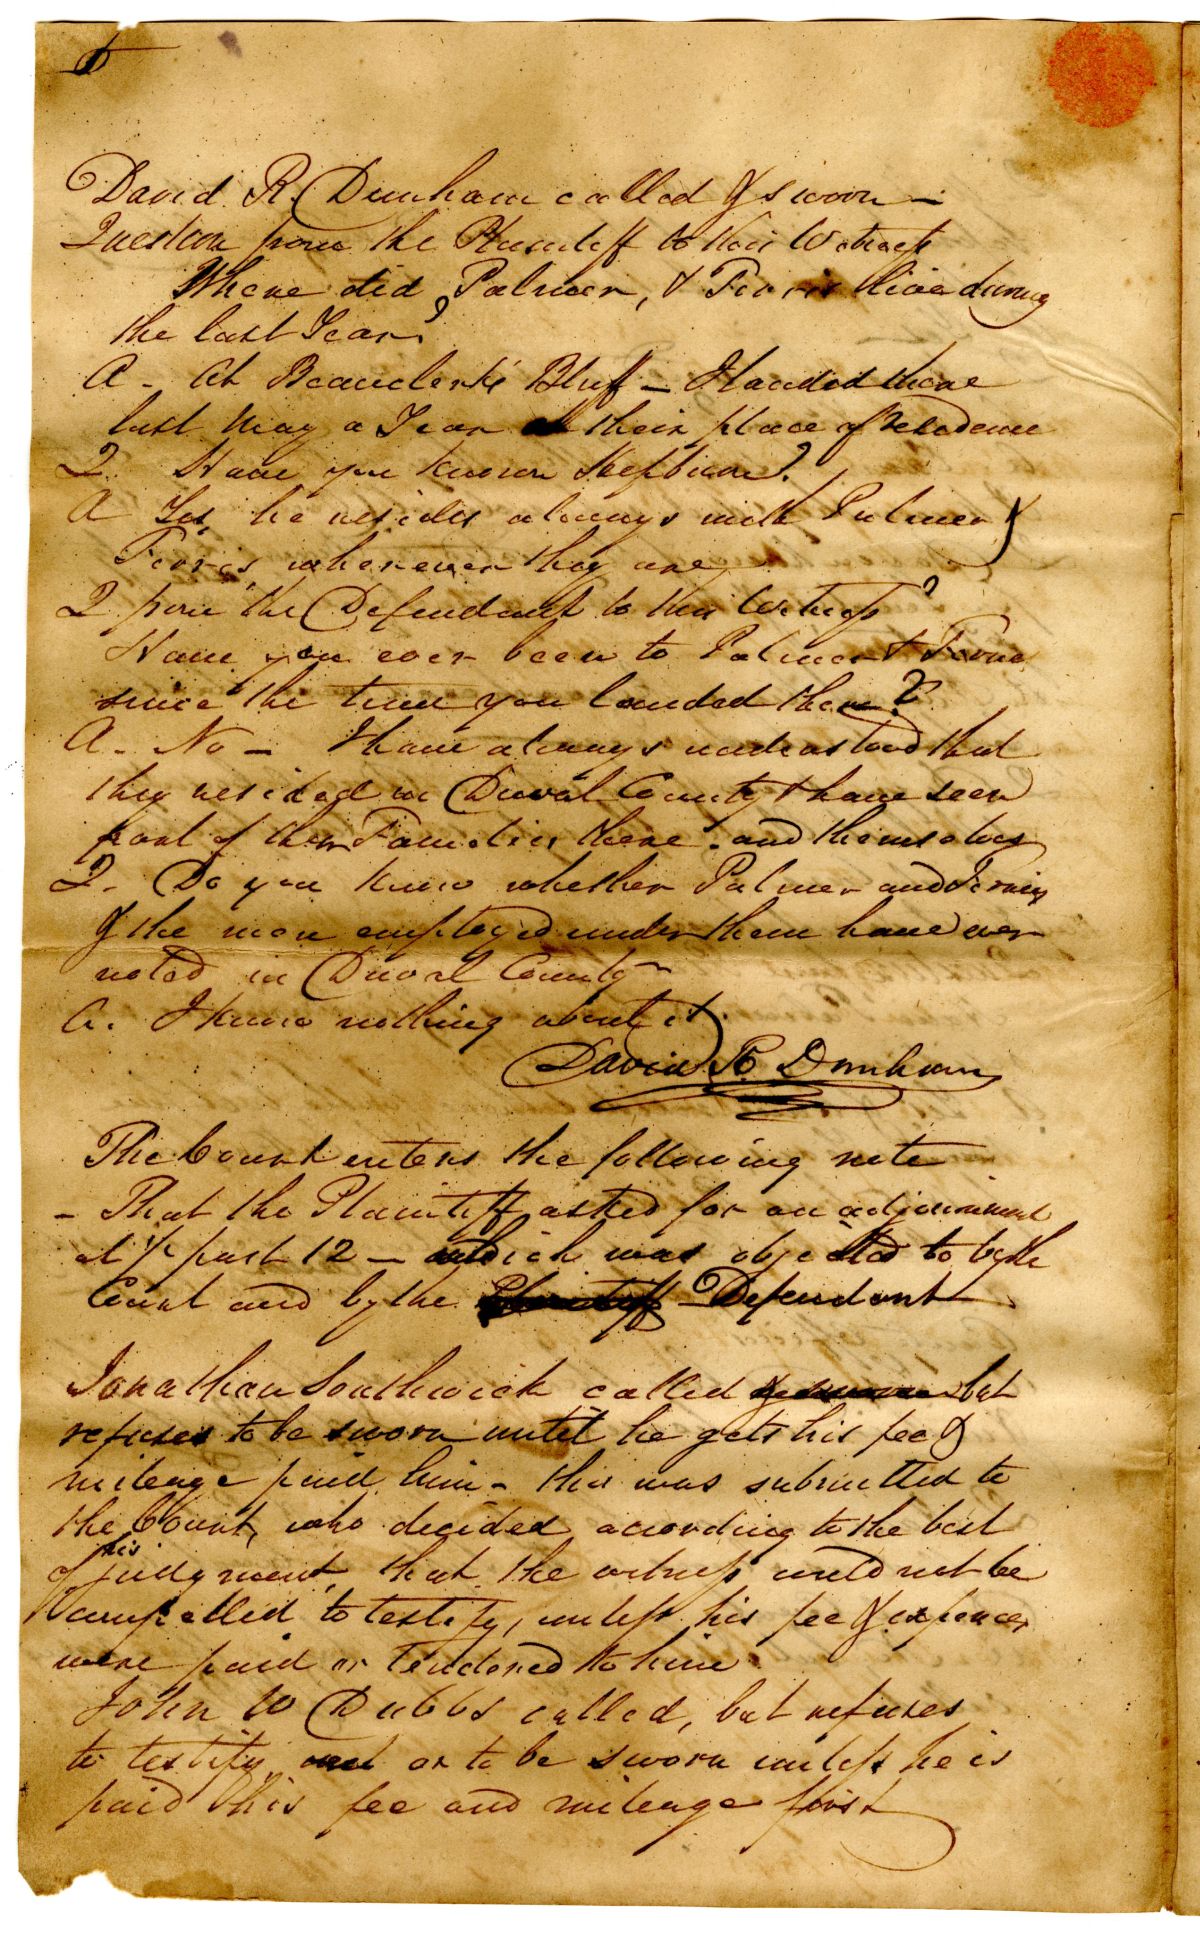 David R. Dunham called & sworn –
Question from the Plaintiff to this Witness
Where did Palmer, & Ferris live during
the last Year?
A – At Beauclerk's Bluff – I landed there
last May a Year at their place of Residence
Q. Have you known
A Yes, he resides always with Palmer &
Ferris wherever they are
Q from the Defendant to this Witness?
Have you ever been to Palmer & Ferris
since the time you landed there?
A – No – I have always understood that
they resided in Duval County & have seen
part of their Families there – and themselves
Q – Do you know whether Palmer and Ferris
& the men employed under them have ever
voted in Duval County –
A. I know nothing about it.
David R. Dunham
The Court enters the following note
– That the Plaintiff asked for an adjournment
at ½ past 12 – which was objected to by the
Court and by the Plaintiff – Defendant
Jonathan Southwick called & sworn but
refuses to be sworn until he gets his fee &
mileage paid him – this was submitted to
the Court, who decided according to the best
of his judgment, that the witness could not be
compelled to testify, unless his fee & expences
were paid or tendered to him
John W Dubbs called, but refuses
to testify or to be sworn unless he is
paid his fee and mileage first